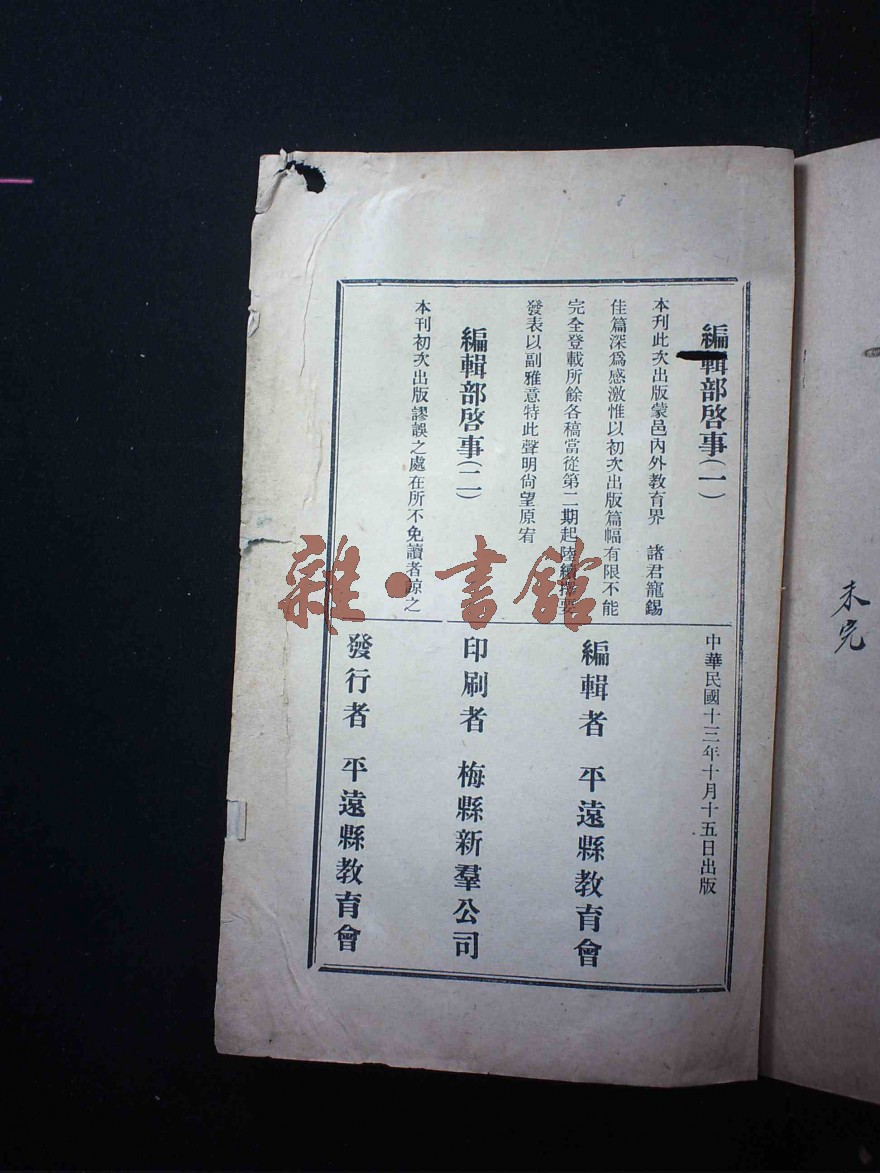 編輯部啓事(一)
本刊此次出版蒙邑內外教育界　諸君寵錫
佳篇深爲感激惟以初次出版篇幅有限不能
完全登載所餘各稿當從第二期起陸續擇要
發表以副雅意特此聲明尙望原宥
編輯部啓事(二)
本刊初次出版謬誤之處在所不免讀者諒之
中華民國十三年十月十五日出版
編輯者　平遠縣教育會
印刷者　梅縣新羣公司
發行者　平遠縣教育會
未完
雜·書館